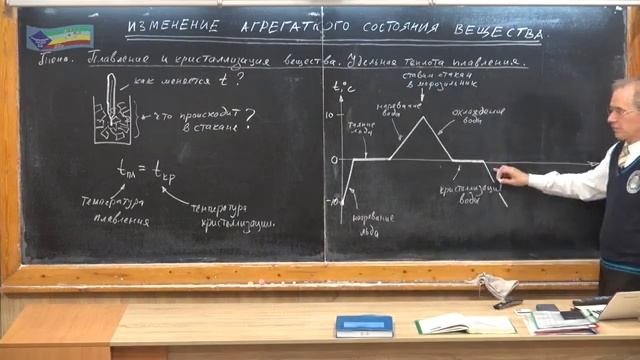 ИЗМЕНЕНИЕ АГРЕГАТНОГО СОСТОЯНИЯ ВЕЩЕСТВА.
Тема. Плавление и кристаллизация вещества. Удельная теплота плавления.
как меняется t?
что происходит в стакане?
t пл = t кр
температура плавления
температура кристаллизации.
ставим стакан
в морозильник
t,°C
10
0
-10
нагревание
вода
охлаждение
вода
таяние
льда
кристаллизация
воды
нагревание
льда